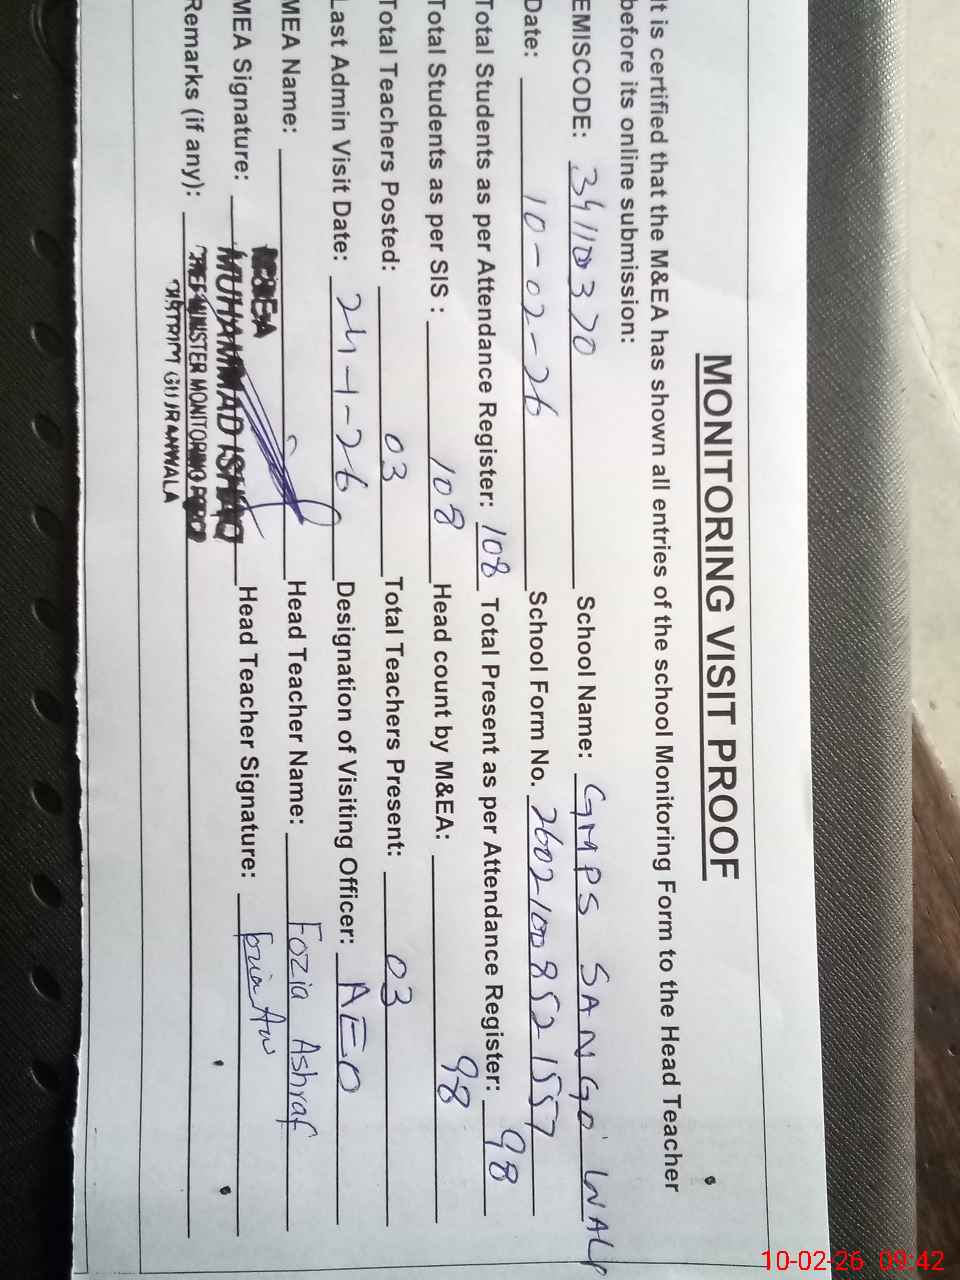 MONITORING VISIT PROOF
It is certified that the M&EA has shown all entries of the school Monitoring Form to the Head Teacher
before its online submission:
EMISCODE: 34110370 School Name: GMPS SANGO WALI
Date: 10-02-26 School Form No. 26021008521557
Total Students as per Attendance Register: 108 Total Present as per Attendance Register: 98
Total Students as per SIS : 108 Head count by M&EA: 98
Total Teachers Posted: 03 Total Teachers Present: 03
Last Admin Visit Date: 24-1-26 Designation of Visiting Officer: AEO
MEA Name: Head Teacher Name: Fozia Ashraf
MEA Signature: MUHAMMAD ISHAQ Head Teacher Signature:
Remarks (if any): CHIEF MINISTER MONITORING FORCE
DISTRICT GUJRANWALA
10-02-26 09:42